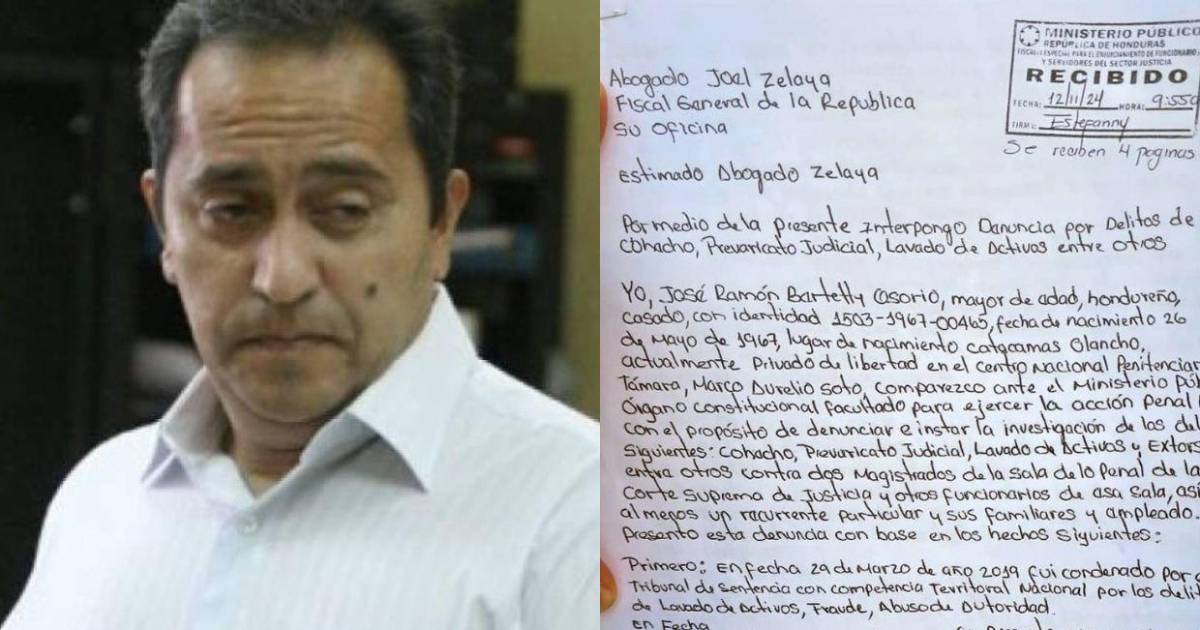 MINISTERIO PÚBLICO
REPÚBLICA DE HONDURAS
FISCALÍA ESPECIAL PARA EL ENJUICIAMIENTO DE FUNCIONARIO
Y SERVIDORES DEL SECTOR JUSTICIA
RECIBIDO
FECHA: 12/11/24 HORA: 9:55
FIRMA: Estefanny
Se reciben 4 paginas
Abogado Joel Zelaya
Fiscal General de la Republica
Su Oficina
Estimado Abogado Zelaya
Por medio de la presente Interpongo Denuncia por Delitos de
Cohacho, Prevaricato Judicial, Lavado de Activos entre otros
Yo, José Ramón Bartetty Osorio, mayor de adad, hondureño,
casado, con identidad 1503-1967-00465, fecha de nacimiento 26
de Mayo de 1967, lugar de nacimiento catacamas Olancho,
actualmente Privado de libertad en el centro Nacional Penitenciar
Támara, Marco Aurelio Soto, comparezco ante el Ministerio Púb
Órgano constitucional facultado para ejercer la acción Penal
con el propósito de denunciar e instar la investigación de los del
Siguientes: Cohacho, Prevaricato Judicial, Lavado de Activos y Extors
entre otros contra dos Magistrados de la Sala de lo Penal de la
Corte Suprema de Justicia y otros funcionarios de asa sala, así
al menos un recurrente particular y sus familiares y ampleado.
Presanto esta denuncia con base en los hechos Siguientes:
Primero: En fecha 29 de Marzo de año 2019 fui condenado por
Tribunal de Sentencia con competencia Territorial Nacional por los delit
de Lavado de Activos, Fraude, Abuso de Autoridad.
en Fecha